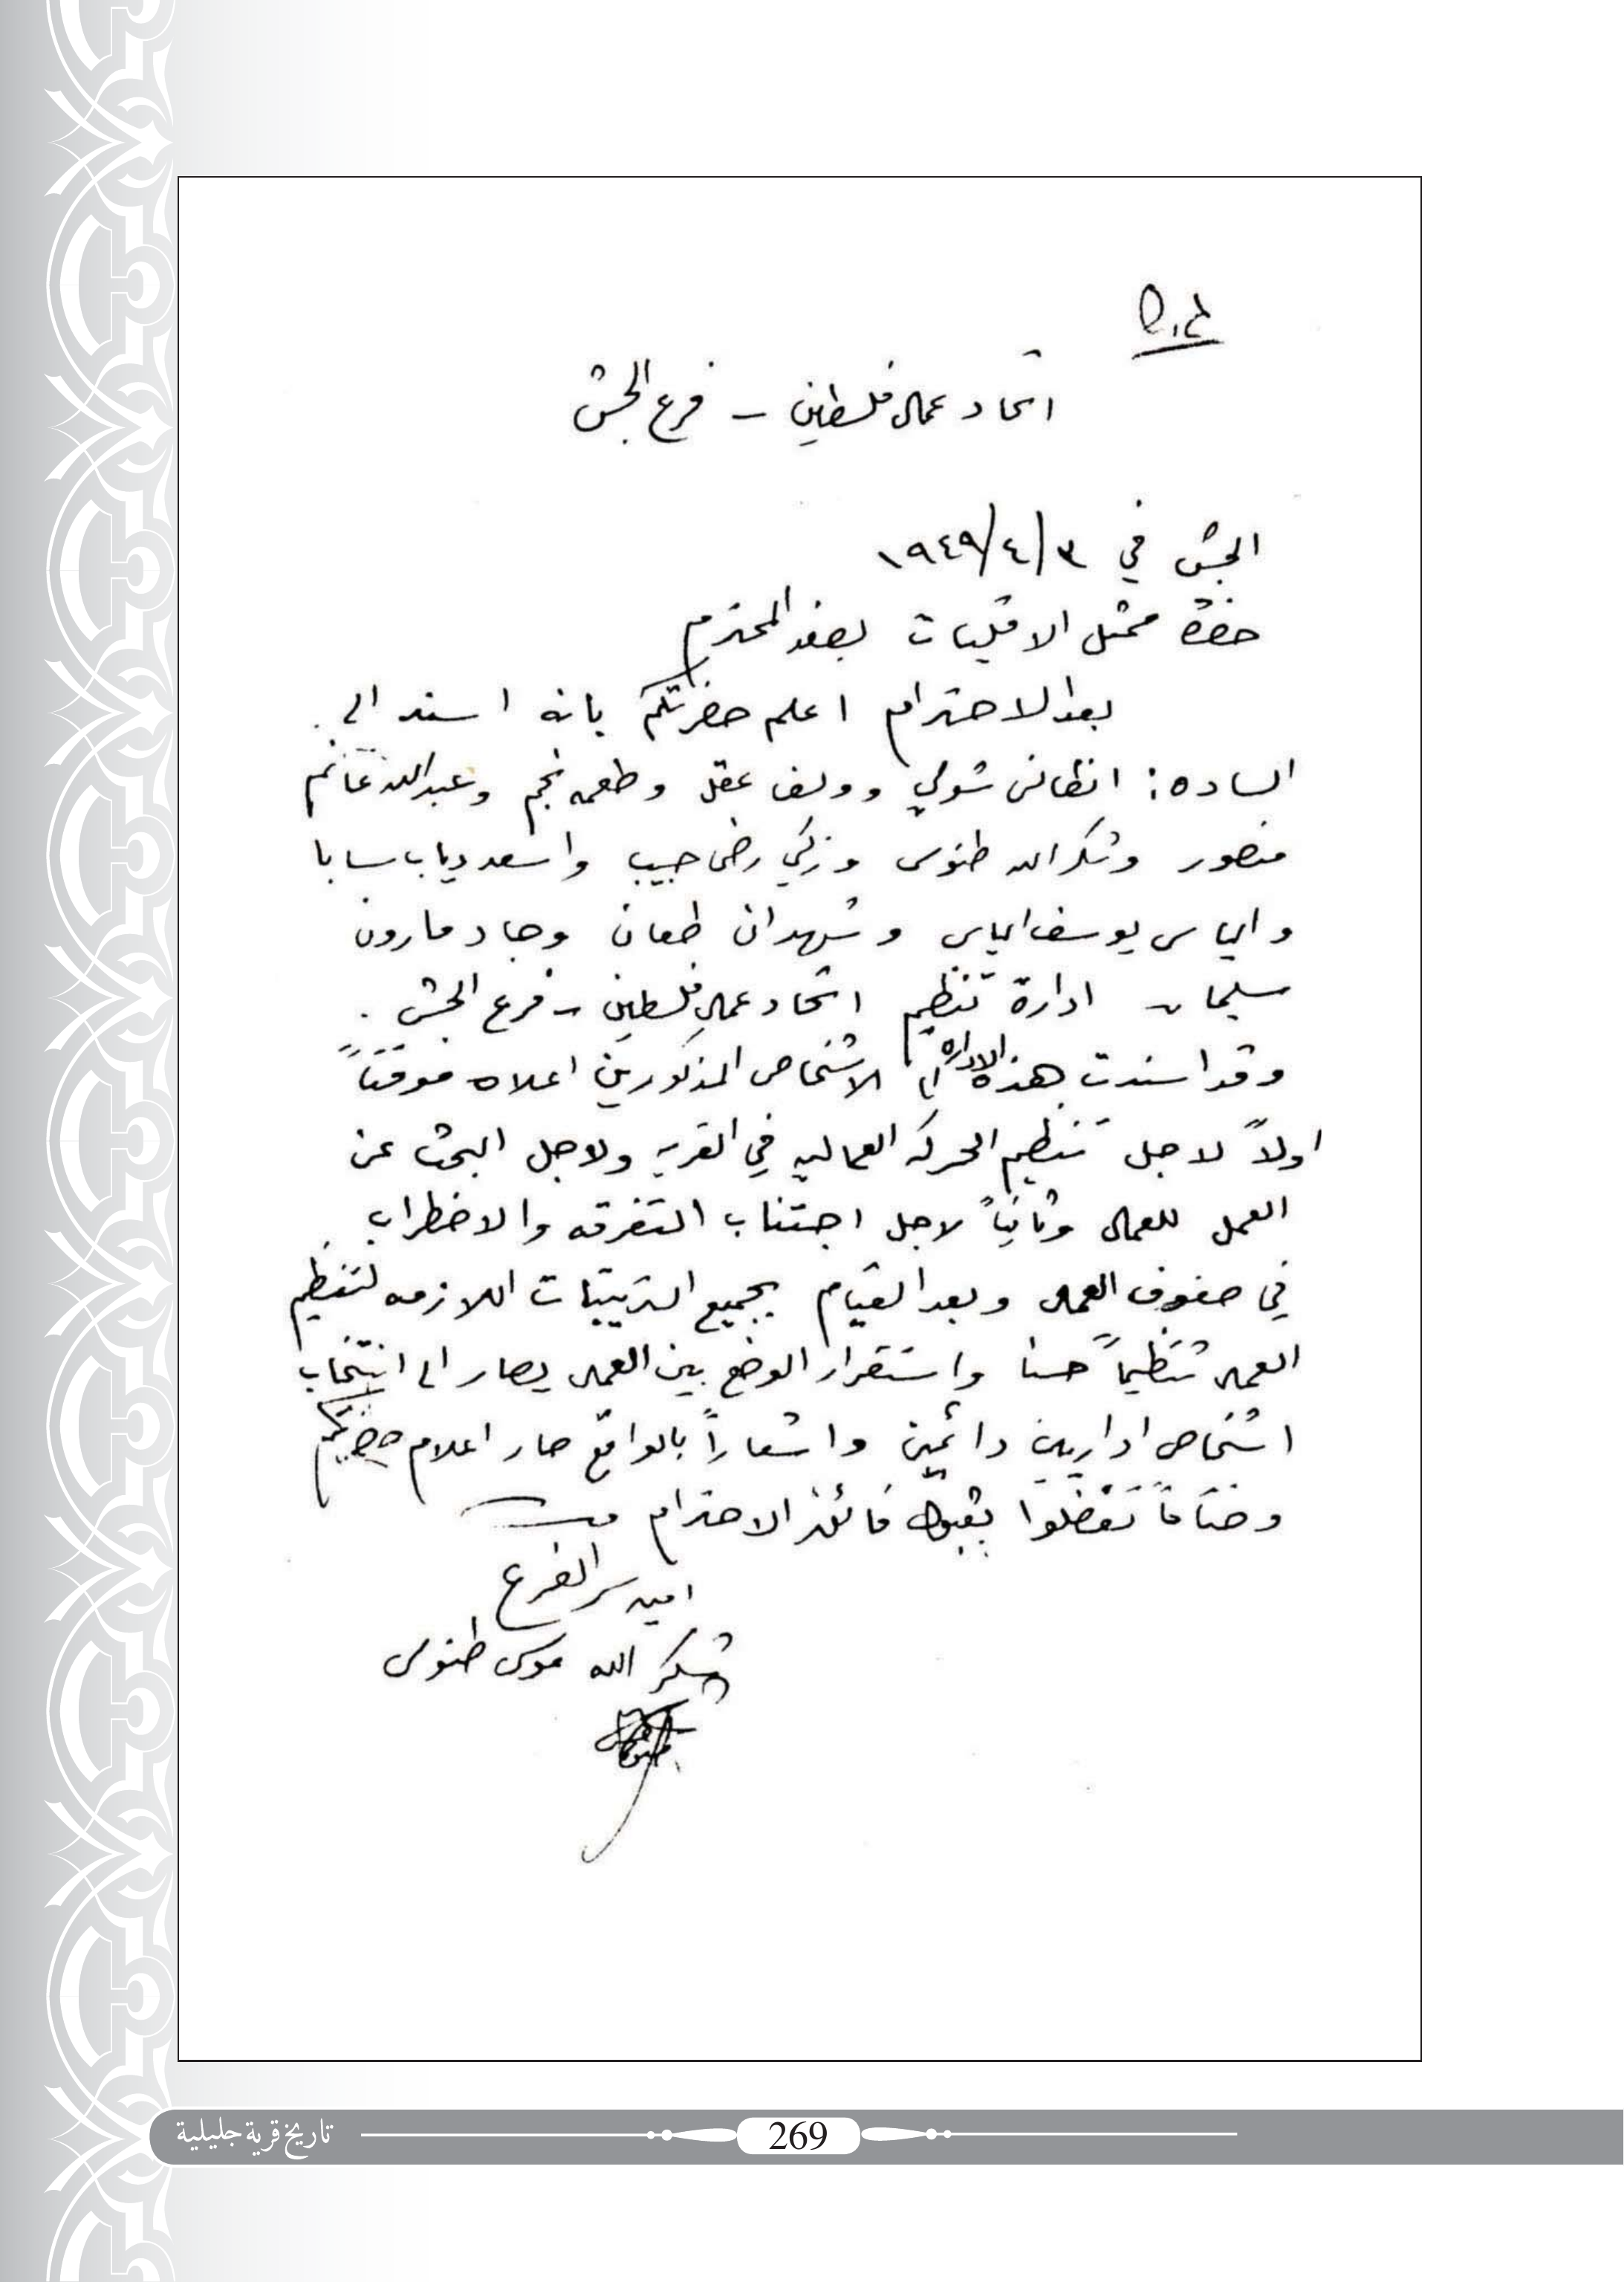 اتحاد عمال فلسطين – فرع الجش
الجش في ٣/٤/١٩٤٩
حضرة ممثل الاقليات بصفد المحترم
بعد الاحترام اعلم حضرتكم بانه اسند الى
الساده: انطانس شولي و عقل وطعمه نجم وعبدالله غانم
منصور وشكرالله طنوس وزكي رضى حبيب واسعد دياب سابا
والياس يوسف الياس وشهدان طعان وجاد مارون
سليمان ادارة تنظيم اتحاد عمال فلسطين – فرع الجش .
وقد اسندت هذه الاداره الى الاشخاص المذكورين اعلاه موقتاً
اولاً لاجل تنظيم الحركه العماليه في القريه ولاجل البحث عن
العمل للعمال وثانياً لاجل اجتناب التفرقه والاضطراب
في صفوف العمال وبعد القيام بجميع الترتيبات اللازمه لتنظيم
العمال تنظيماً حسنا واستقرار الوضع بين العمال يصار الى انتخاب
اشخاص اداريين دائمين واشعاراً بالواقع صار اعلام حضرتكم
وختاماً تفضلوا بقبول فائق الاحترام
امين سر الفرع
شكر الله موسى طنوس
269
تاريخ قرية جليلية